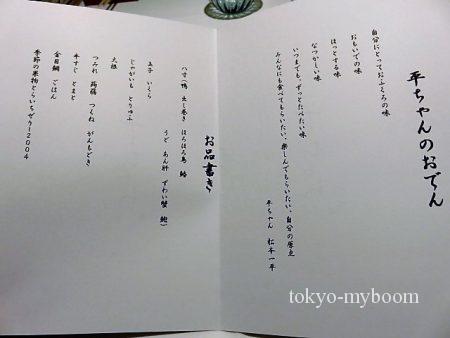 平ちゃんのおでん
自分にとっておふくろの味
おもいでの味
ほっとする味
なつかしい味
いつまでも、ずっとたべたい味
みんなにも食べてもらいたい、楽しんでもらいたい、自分の原点
平ちゃん 松本一平
お品書き
八寸(鴨 出し巻き ほろほろ鳥 鮪
うど あん肝 ずわい蟹 鮑)
玉子 いくら
じゃがいも とりゅふ
大根
つみれ 蒟蒻 つくね がんもどき
牛すじ とまと
金目鯛 ごはん
季節の果物とらいちぜりー2004
tokyo-myboom